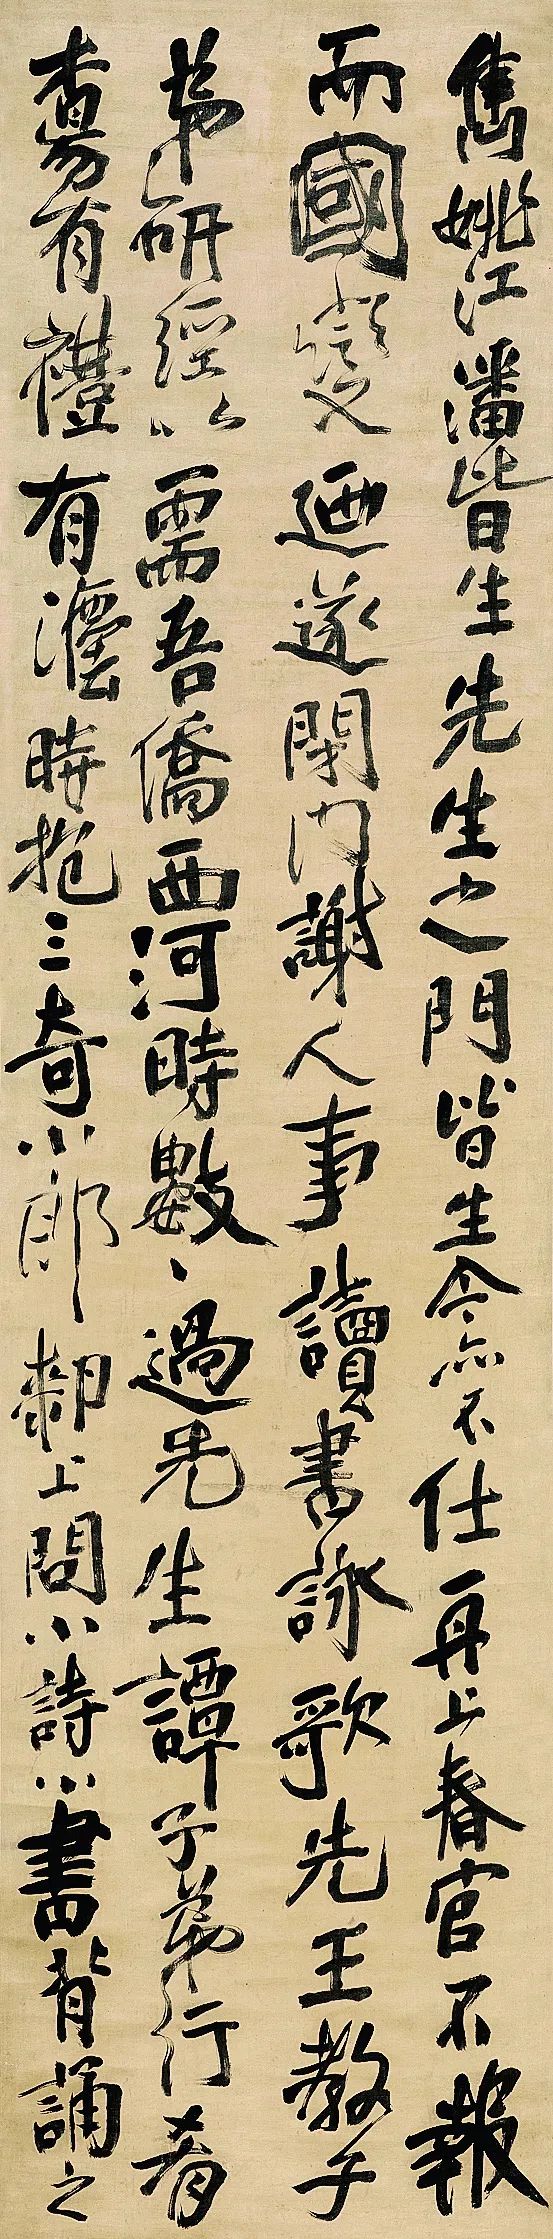 雋姚江潘皆生先生之門皆生念亦不仕再上春官不報
而國變迺遂閉門謝人事讀書詠歌先王教子
弟研經以需吾僑西河時數〻過先生譚子弟行者
有禮有灋時抱三奇小郎郗上問小詩小書背誦之